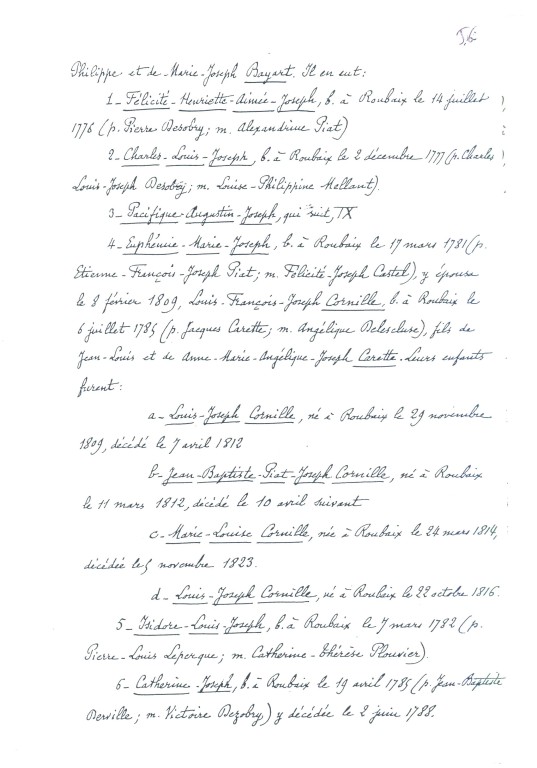 56
Philippe et de Marie-Joseph Bayart. Il en eut :
1_ Félicité-Henriette-Aimée-Joseph, b. à Roubaix le 14 juillet
1776 (p. Pierre Desobry ; m. Alexandrine Piat)
2_ Charles-Louis-Joseph, b. à Roubaix le 2 décembre 1777 (p. Charles
Louis-Joseph Desobry ; m. Louise-Philippine Mellant).
3_ Pacifique Augustin-Joseph, qui suit, IX
4_ Euphémie-Marie-Joseph, b. à Roubaix le 17 mars 1781 (p.
Etienne-François-Joseph Piat ; m. Félicité-Joseph Castel), y épouse
le 8 février 1809, Louis-François-Joseph Cornille, b. à Roubaix le
6 juillet 1785 (p. Jacques Carette ; m. Angélique Delescluse), fils de
Jean-Louis et de Anne-Marie-Angélique-Joseph Carette. Leurs enfants
furent :
a_ Louis-Joseph Cornille, né à Roubaix le 29 novembre
1809, décédé le 7 avril 1812
b_ Jean-Baptiste-Piat-Joseph Cornille, né à Roubaix
le 11 mars 1812, décédé le 10 avril suivant
c_ Marie-Louise Cornille, née à Roubaix le 24 mars 1814,
décédée le 5 novembre 1823.
d_ Louis-Joseph Cornille, né à Roubaix le 22 octobre 1816.
5_ Isidore-Louis-Joseph, b. à Roubaix le 7 mars 1782 (p.
Pierre-Louis Leperque ; m. Catherine-Thérèse Plouvier).
6_ Catherine-Joseph, b. à Roubaix le 19 avril 1785 (p. Jean-Baptiste
Derville ; m. Victoire Dezobry) y décédée le 2 juin 1788.